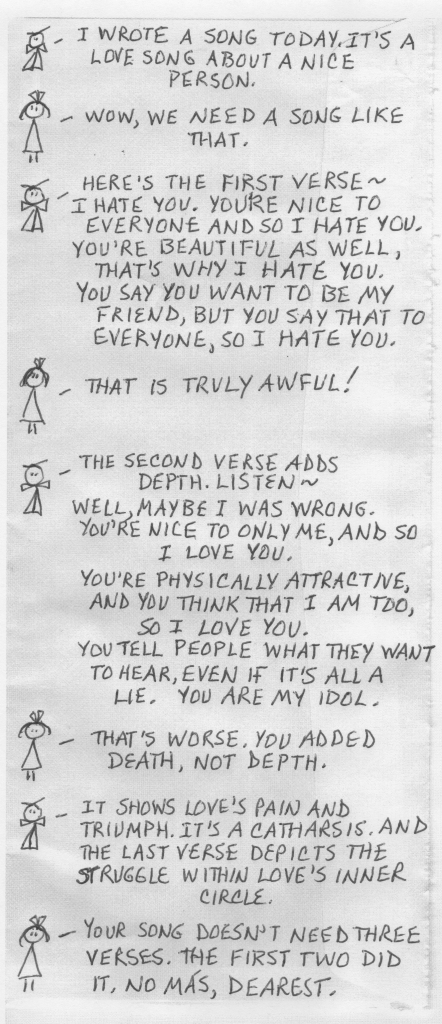 I WROTE A SONG TODAY. IT'S A
LOVE SONG ABOUT A NICE
PERSON.
WOW, WE NEED A SONG LIKE
THAT.
HERE'S THE FIRST VERSE~
I HATE YOU. YOU'RE NICE TO
EVERYONE AND SO I HATE YOU.
YOU'RE BEAUTIFUL AS WELL,
THAT'S WHY I HATE YOU.
YOU SAY YOU WANT TO BE MY
FRIEND, BUT YOU SAY THAT TO
EVERYONE, SO I HATE YOU.
THAT IS TRULY AWFUL!
THE SECOND VERSE ADDS
DEPTH. LISTEN~
WELL, MAYBE I WAS WRONG.
YOU'RE NICE TO ONLY ME, AND SO
I LOVE YOU.
YOU'RE PHYSICALLY ATTRACTIVE,
AND YOU THINK THAT I AM TOO,
SO I LOVE YOU.
YOU TELL PEOPLE WHAT THEY WANT
TO HEAR, EVEN IF IT'S ALL A
LIE. YOU ARE MY IDOL.
THAT'S WORSE. YOU ADDED
DEATH, NOT DEPTH.
IT SHOWS LOVE'S PAIN AND
TRIUMPH. IT'S A CATHARSIS. AND
THE LAST VERSE DEPICTS THE
STRUGGLE WITHIN LOVE'S INNER
CIRCLE.
YOUR SONG DOESN'T NEED THREE
VERSES. THE FIRST TWO DID
IT. NO MÁS, DEAREST.